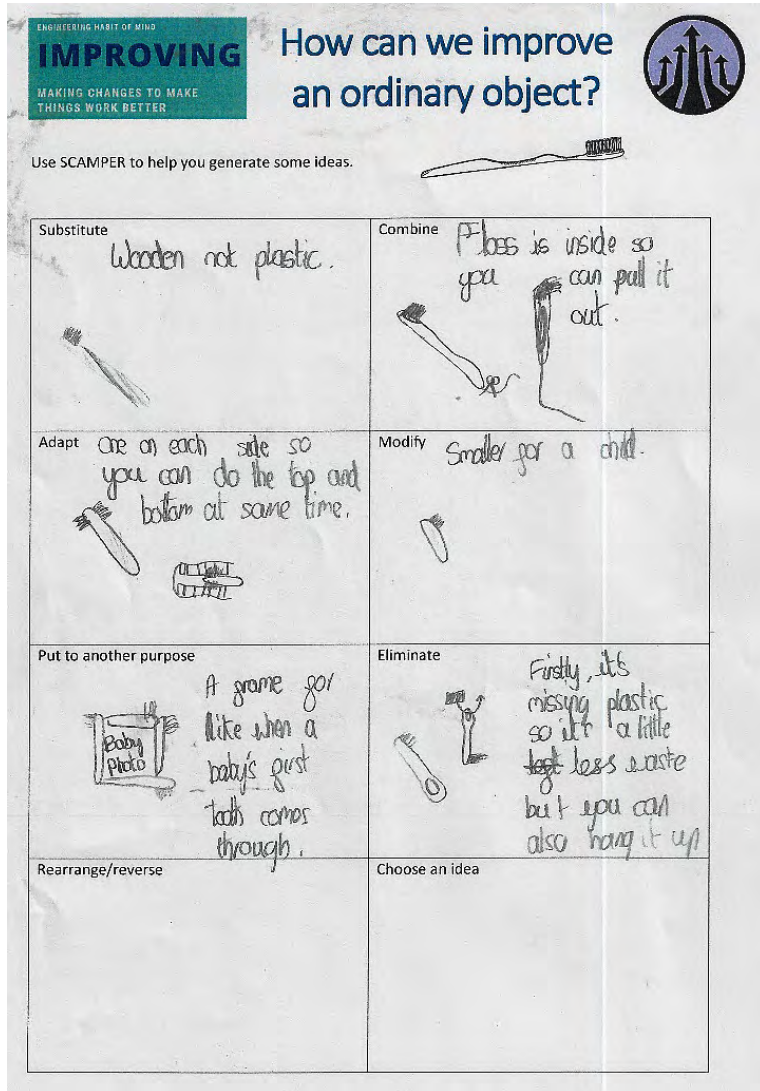 ENGINEERING HABIT OF MIND
IMPROVING
MAKING CHANGES TO MAKE
THINGS WORK BETTER
How can we improve
an ordinary object?
Use SCAMPER to help you generate some ideas.
Substitute
Wooden not plastic.
Combine
Floss is inside so
you can pull it
out.
Adapt
one on each side so
you can do the top and
bottom at same time.
Modify
Smaller for a child.
Put to another purpose
Baby
Photo
A frame for
like when a
baby's first
tooth comes
through.
Eliminate
Firstly, it's
missing plastic
so it's a little
less waste
but you can
also hang it up
Rearrange/reverse
Choose an idea